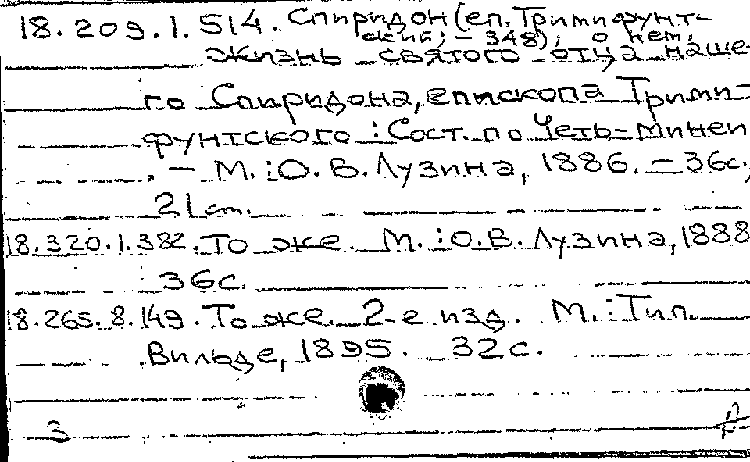 18.209.1.514. Спиридон (еп. Тримифунт-
ский; – 348), о нем.
Жизнь святого отца наше-
го Спиридона, епископа Трими-
фунтского : Сост. по Четь-Минеи
. – М. : О. В. Лузина, 1886. – 36с;
21 cm.
18.320.1.382. То же. М. : О.В. Лузина, 1888
36с.
18.265.8.149. То же. 2-е изд. М. : Тип.
Вильде, 1895. 32с.
3